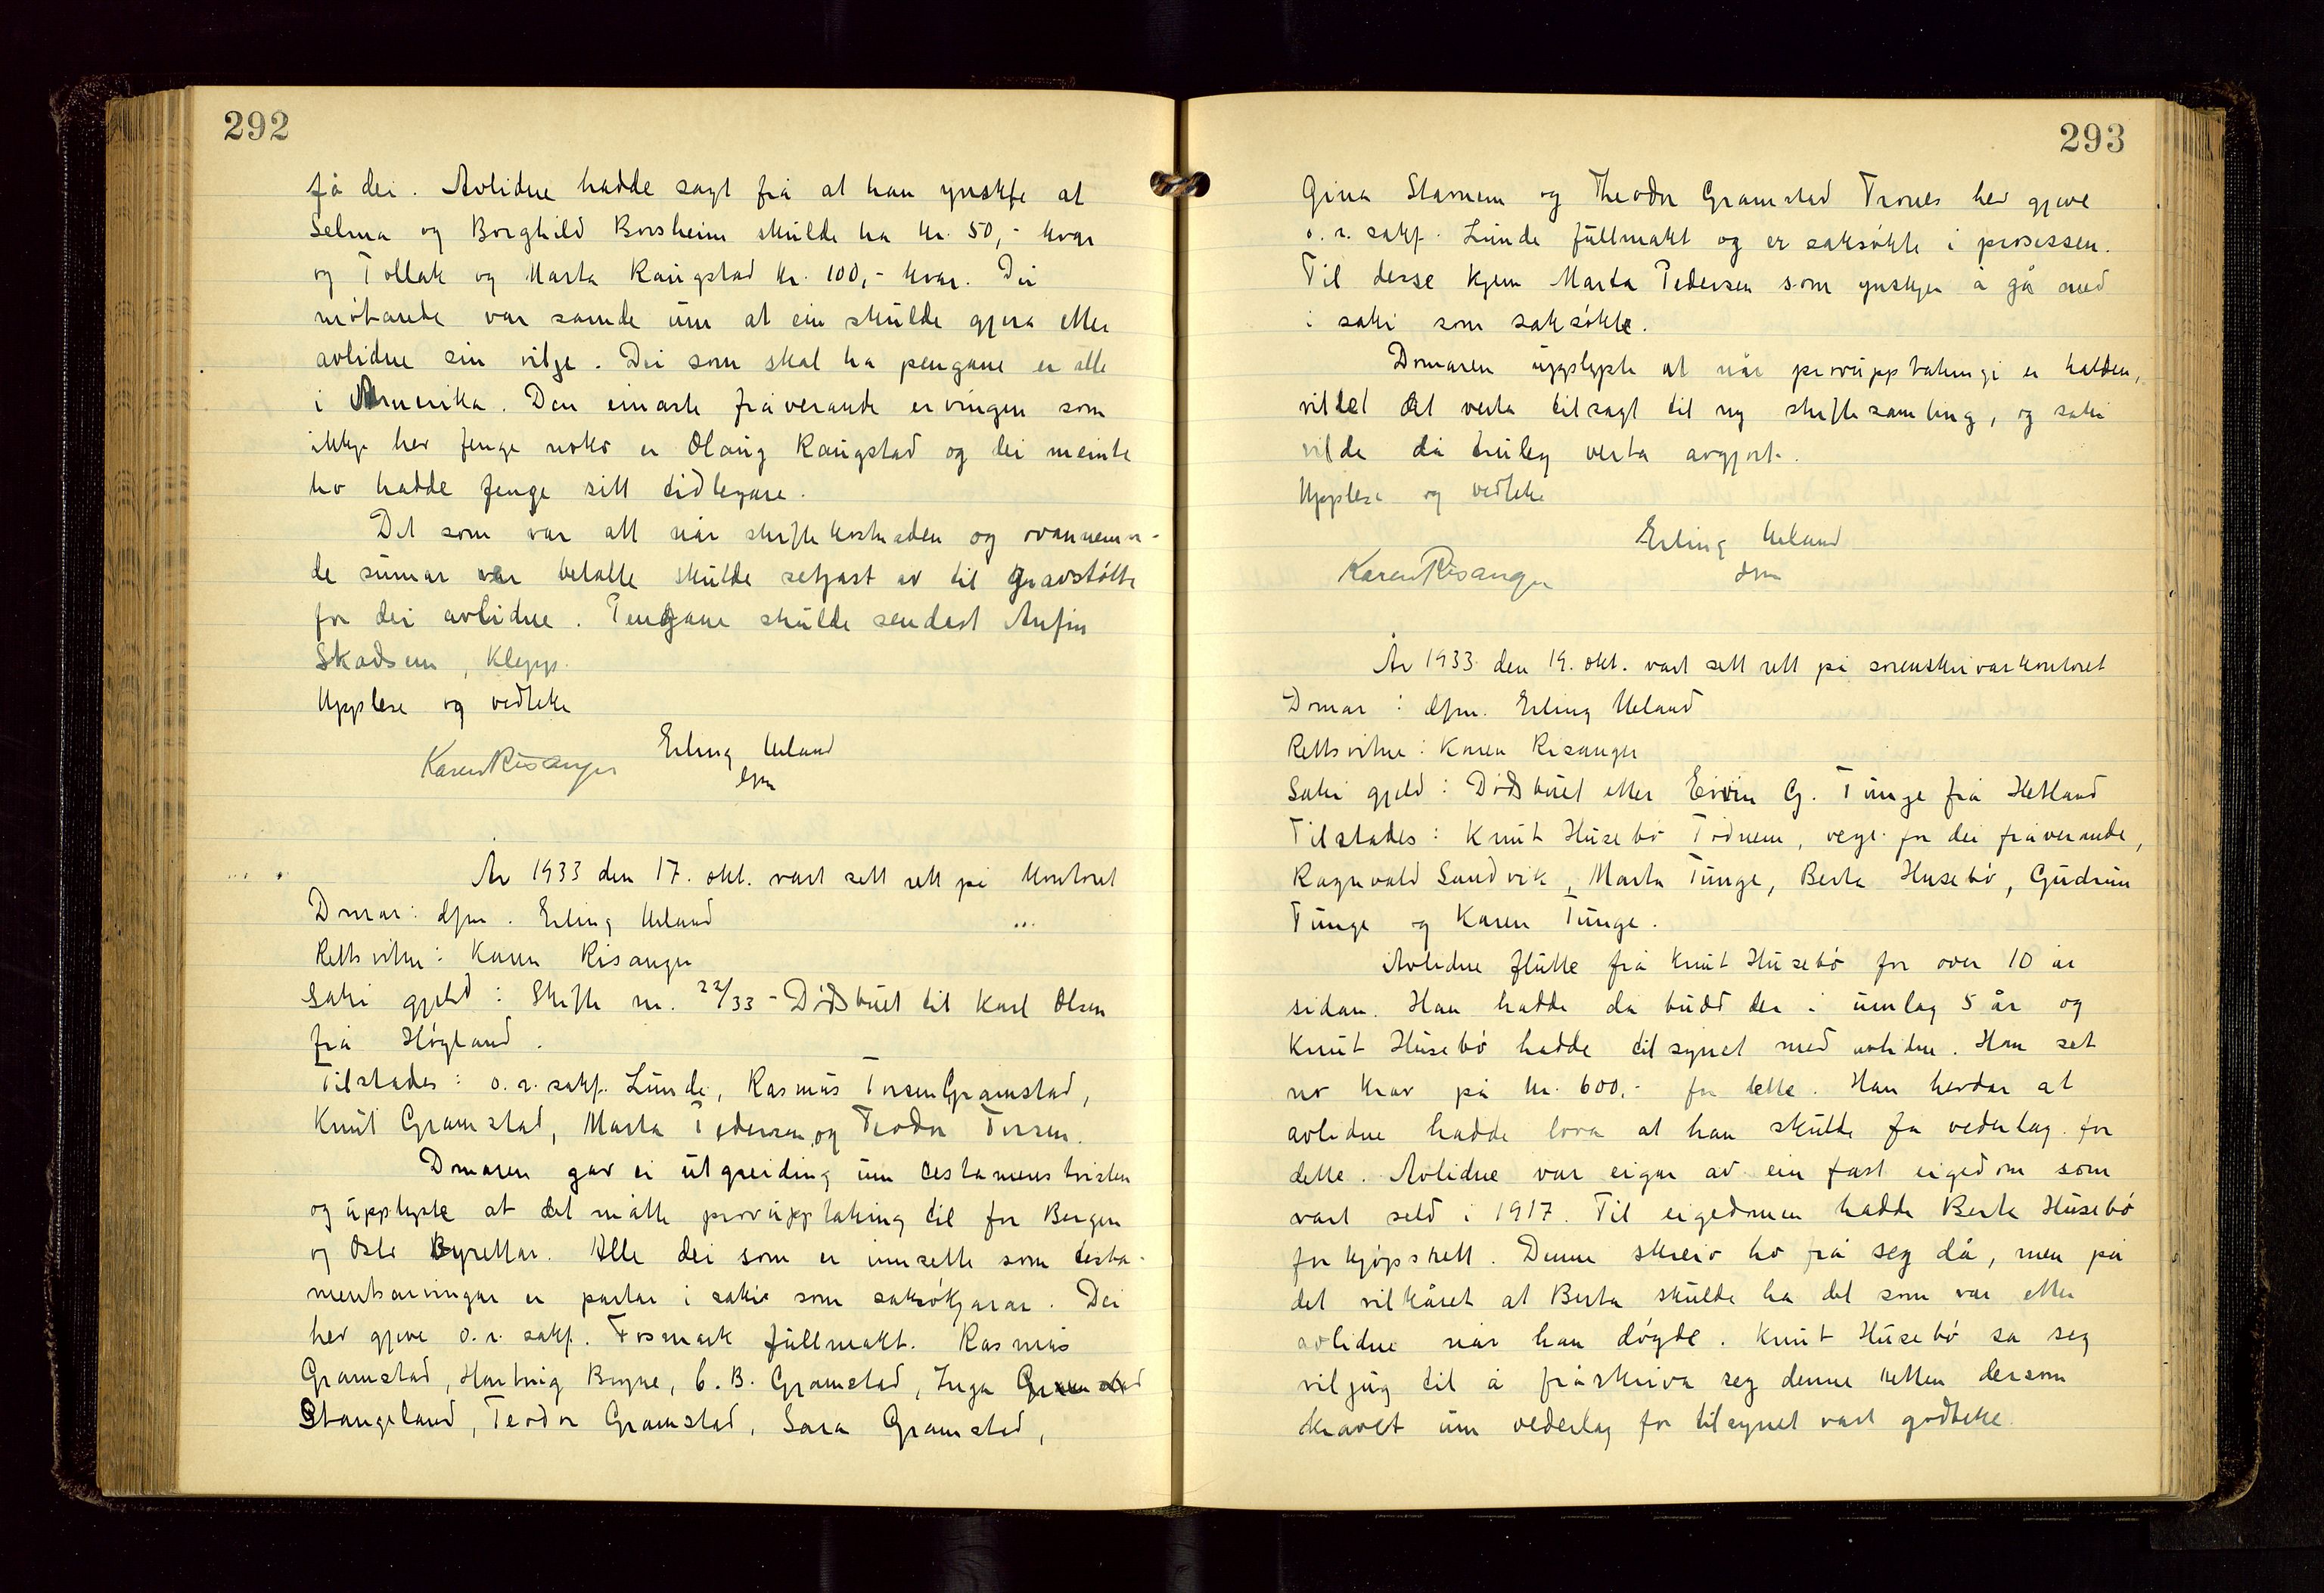 292
få dei. Avlidne hadde sagt frå at han ynskte at
Selma og Borghild Borsheim skulde ha kr. 50,- kvar
og Tollak og Marta Raugstad kr. 100,- kvar. Dei
møtande var samde um at ein skulde gjera etter
avlidne sin vilje. Dei som skal ha pengane er alle
i Amerika. Den einaste fråverande ervingen som
ikkje hev fenge noko er Olaug Raugstad og dei meinte
ho hadde fenge sitt tidlegare.
Det som var att når skiftekostnaden og ovannemn-
de sumar var betalte skulde setjast av til gravstøtte
for dei avlidne. Pengane skulde sendast Anfin
Skadsem, Klepp.
Upplese og vedteke
Erling Ueland
Karen Risanger dfm
År 1933 den 17. okt. vart sett rett på kontoret
Domar: dfm. Erling Ueland
Rettsvitne: Karen Risanger
Saki gjeld: Skifte nr. 22/33 - Dødsbuet til Karl Olsen
frå Høyland.
Tilstades: o.r. sakf. Lunde, Rasmus Torsen Gramstad,
Knut Gramstad, Marta Pedersen og Teodor Torsen.
Domaren gav ei utgreiding um testamenstvisten
og upplyste at det måtte provupptaking til for Bergen
og Oslo Byrettar. Alle dei som er innsette som testa-
mentsarvingar er partar i saki som saksøkjarar. Dei
hev gjeve o.r. sakf. Fosmark fullmakt. Rasmus
Gramstad, Hartvig Bryne, C. B. Gramstad, Inga Gramstad
Stangeland, Teodor Gramstad, Sara Gramstad,
293
Gina Stavnem og Theodor Gramstad Trones hev gjeve
o.r. sakf. Lunde fullmakt og er saksøkte i prosessen.
Til desse kjem Marta Pedersen som ynskjer å gå med
i saki som saksøkte.
Domaren upplyste at når provupptakingi er halden,
vil det verta tilsagt til ny skiftesamling, og saki
vilde då truleg verta avgjort.
Upplese og vedteke
Erling Ueland
Karen Risanger dfm
År 1933 den 19. okt. vart sett rett på sorenskrivarkontoret
Domar: dfm. Erling Ueland
Rettsvitne: Karen Risanger
Saki gjeld: Dødsbuet etter Eivin G. Tunge frå Hetland
Tilstades: Knut Husebø Todnem, verje for dei fråverande,
Ragnvald Sandvik, Marta Tunge, Berta Husebø, Gudrun
Tunge og Karen Tunge.
Avlidne flutte frå Knut Husebø for over 10 år
sidan. Han hadde då budd der i umlag 5 år og
Knut Husebø hadde tilsynet med avlidne. Han set
no krav på kr. 600,- for dette. Han hevdar at
avlidne hadde lova at han skulde få vederlag for
dette. Avlidne var eigar av ein fast eigedom som
vart seld i 1917. Til eigedomen hadde Berta Husebø
forkjøpsrett. Denne skreiv ho frå seg då, men på
det vilkåret at Berta skulde ha det som var etter
avlidne når han døyde. Knut Husebø sa seg
viljug til å fråskriva seg denne retten dersom
kravet um vederlag for tilsynet vart godteke.